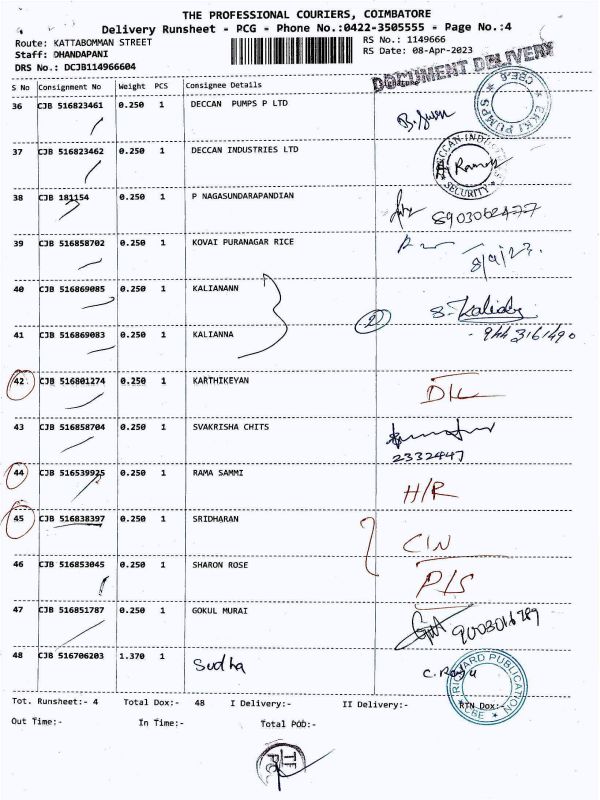 THE PROFESSIONAL COURIERS, COIMBATORE
Delivery Runsheet - PCG - Phone No.:0422-3505555 - Page No.:4
Route: KATTABOMMAN STREET RS No.: 1149666
Staff: DHANDAPANI RS Date: 08-Apr-2023
DRS No.: DCJB114966604
DOCUMENT DELIVERY
S No Consignment No Weight PCS Consignee Details
36 CJB 516823461 0.250 1 DECCAN PUMPS P LTD
EKKI PUMPS * CBE-8 *
37 CJB 516823462 0.250 1 DECCAN INDUSTRIES LTD
DECCAN INDUSTRIES SECURITY
38 CJB 181154 0.250 1 P NAGASUNDARAPANDIAN
39 CJB 516858702 0.250 1 KOVAI PURANAGAR RICE
40 CJB 516869085 0.250 1 KALIANANN
2
41 CJB 516869083 0.250 1 KALIANNA
9443161490
42 CJB 516801274 0.250 1 KARTHIKEYAN D/L
43 CJB 516858704 0.250 1 SVAKRISHA CHITS
2332447
44 CJB 516539925 0.250 1 RAMA SAMMI H/R
45 CJB 516838397 0.250 1 SRIDHARAN C/N
46 CJB 516853045 0.250 1 SHARON ROSE P/S
47 CJB 516851787 0.250 1 GOKUL MURAI
48 CJB 516706203 1.370 1 Sudha
RICHARD PUBLICATION * CBE *
Tot. Runsheet:- 4 Total Dox:- 48 I Delivery:- II Delivery:- RTN Dox:-
Out Time:- In Time:- Total POD:-